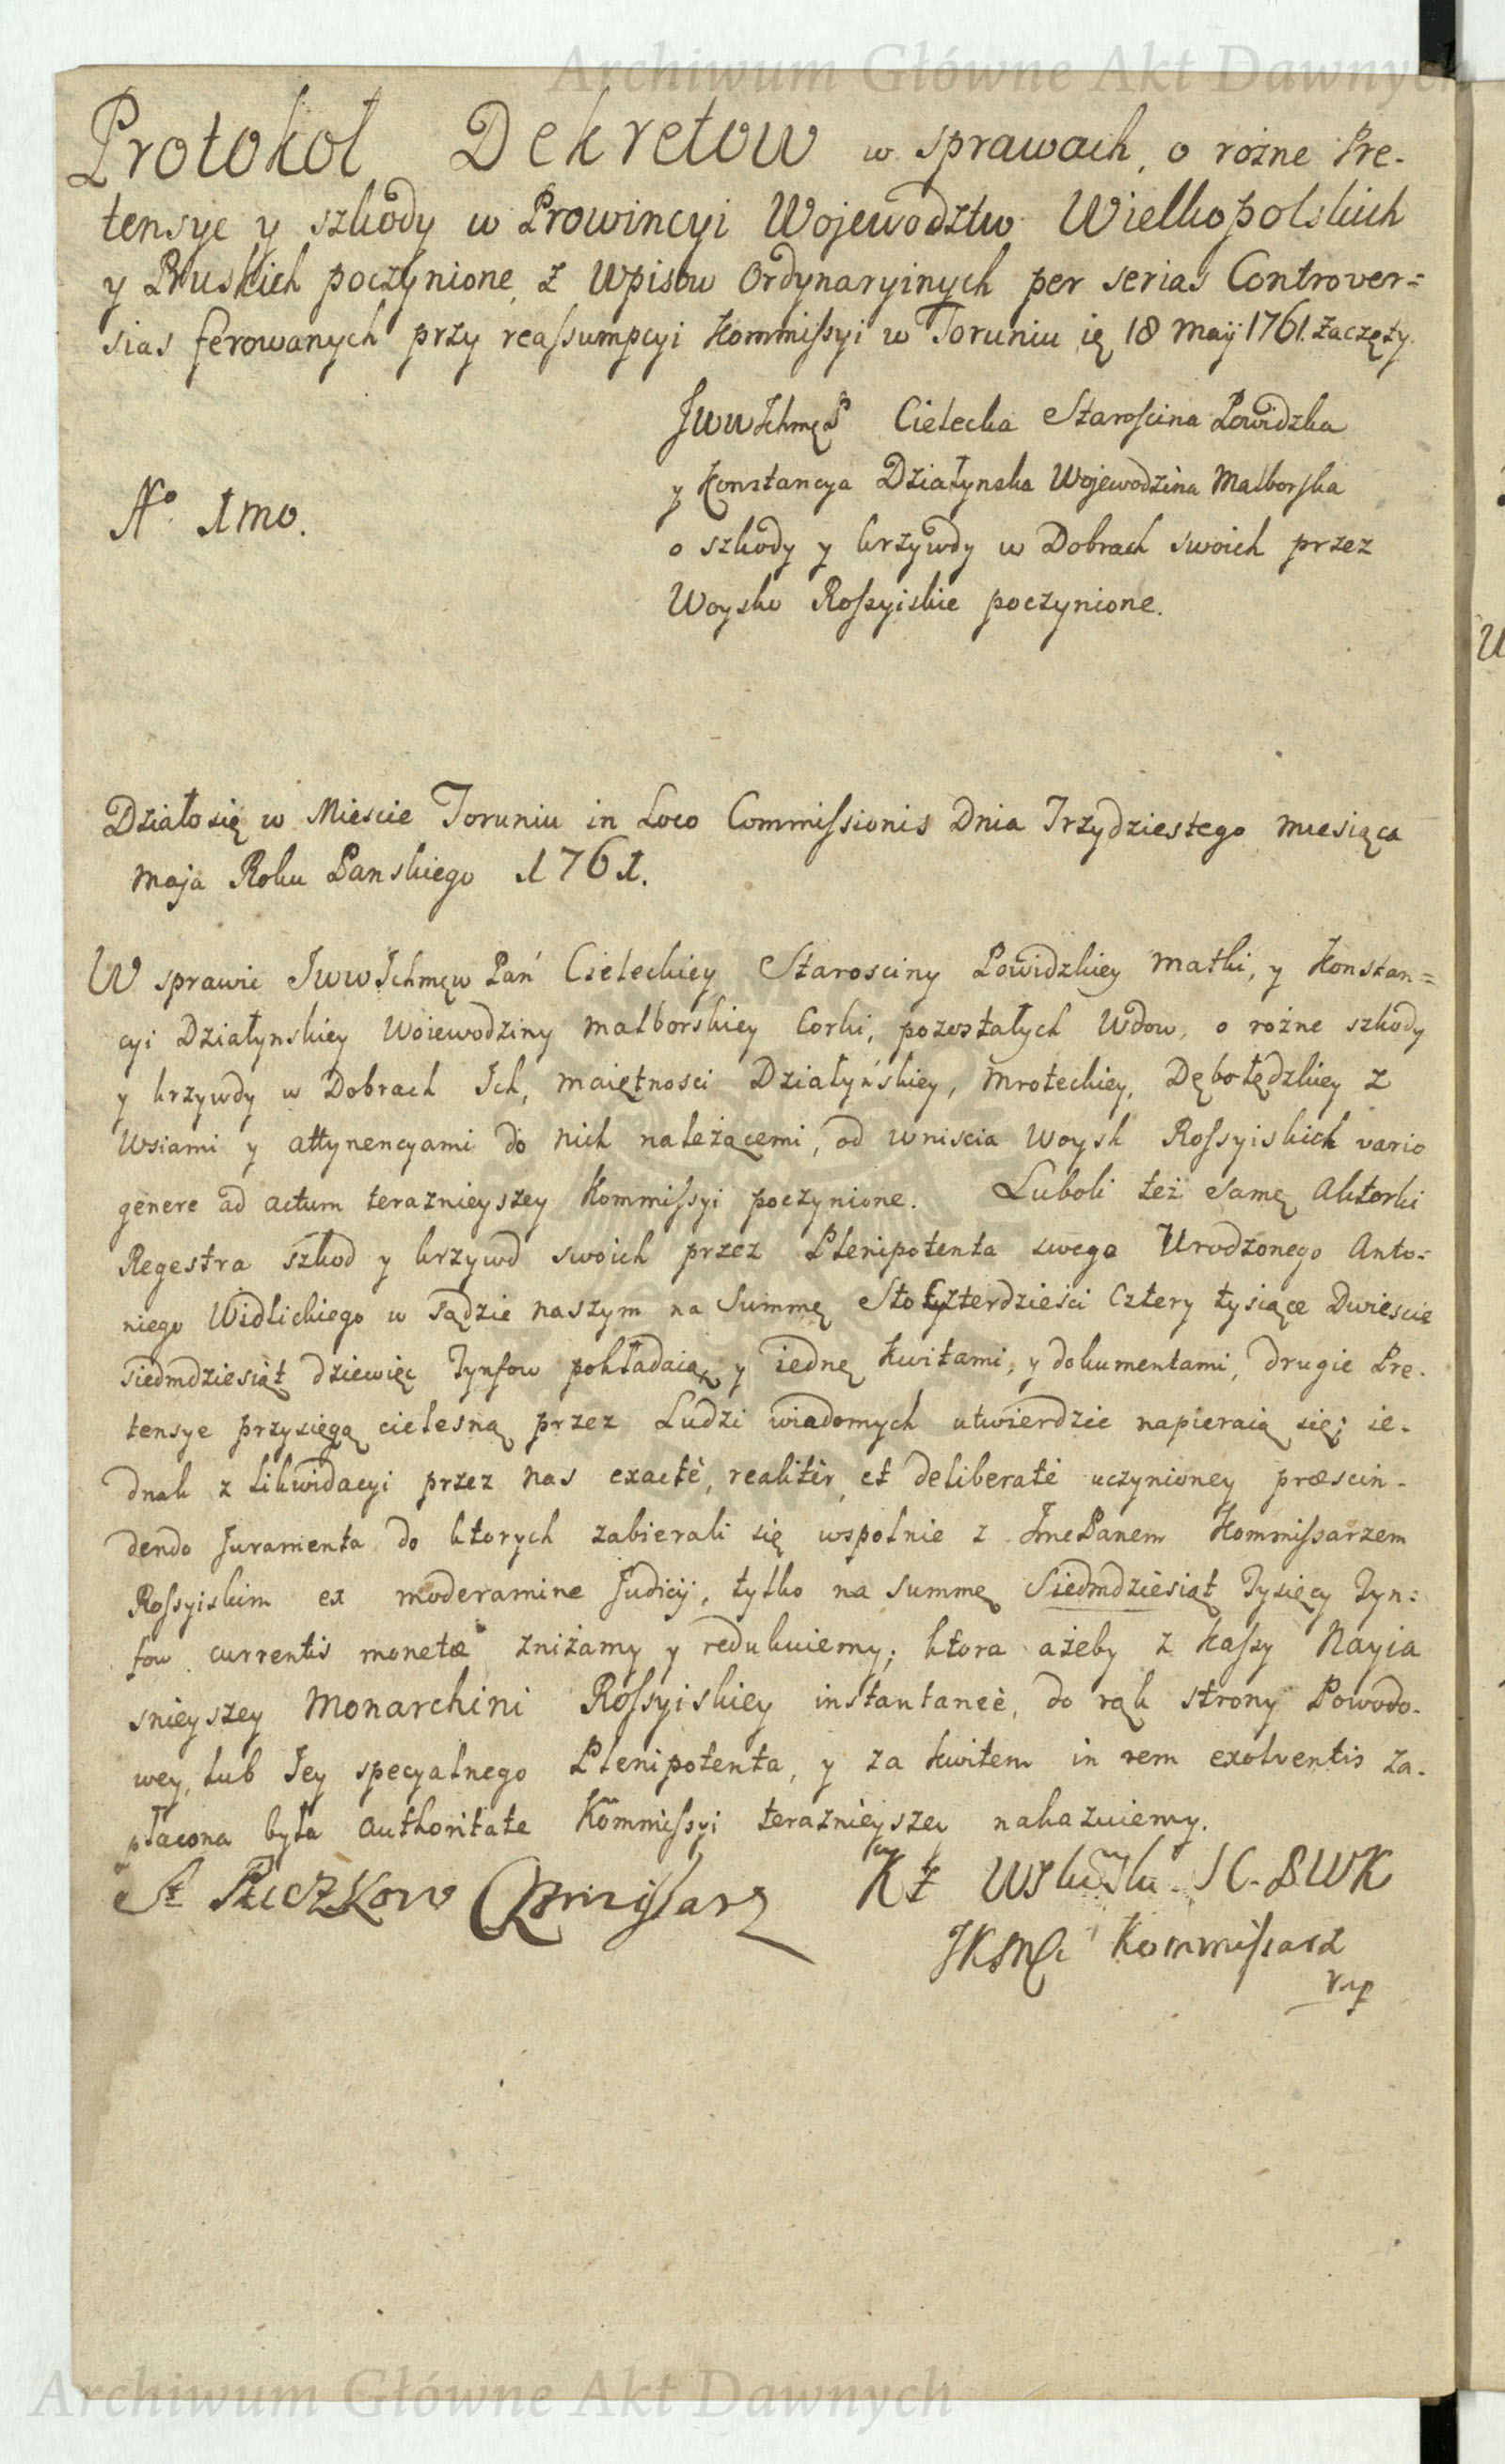 Archiwum Główne Akt Dawnych
Protokoł Dekretow w sprawach, o rożne Pre-
tensye y szkody w Prowincyi Wojewodztw Wielkopolskich
y Pruskich poczynione, z Wpisow Ordynaryinych per serias Controver=
sias ferowanych przy reassumpcyi Kommissyi w Toruniu ię 18 Maÿ 1761. zaczęty.
JWWIchmęP Cielecka Starościna Powidzka
y Konstancya Działynska Wojewodzina Malborska
o szkody y krzywdy w Dobrach swoich przez
Woysko Rossyiskie poczynione.
No. 1mo.
Działo się w Miescie Toruniu in Loco Commissionis Dnia Trzydziestego miesiąca
Maja Roku Panskiego 1761.
W sprawie JWWIchmęw Pań Cieleckiey Starosciny Powidzkiey Matki, y Konstan=
cyi Działynskiey Woiewodziny Malborskiey Corki, pozostałych Wdow, o rożne szkody
y krzywdy w Dobrach Ich, maiętnosci Działyńskiey, Mroteckiey, Dębołędzkiey z
Wsiami y attynencyami do nich należącemi, od wniscia Woysk Rossyiskich vario
genere ad actum teraznieyszey Kommissyi poczynione. Luboli też samę Aktorki
Regestra szkod y krzywd swoich przez Plenipotenta swego Urodzonego Anto=
niego Widlickiego w sądzie naszym na Summę Sto Czterdziesci Cztery tysiące Dwiescie
siedmdziesiąt dziewięc Tynfow pokładaią, y iednę kwitami, y dokumentami, drugie Pre-
tensye przysięgą cielesną przez Ludzi wiadomych utwierdzic napieraią się; ie-
dnak z likwidacyi przez nas exactè, realitèr, et deliberatè uczynioney præscin-
dendo Juramenta do ktorych zabierali się wspolnie z JmePanem Kommissarzem
Rossyiskim ex moderamine Judicij, tylko na summę Siedmdziesiąt Tysięcy Tyn=
fow currentis monetæ zniżamy y redukuiemy; ktora ażeby z Kassy Nayia
snieyszey Monarchini Rossyiskiey instantaneè, do rąk strony Powodo-
wey, lub Jey specyalnego Plenipotenta, y za kwitem in rem exolventis za-
płacona była authoritate Kommissyi teraznieyszey nakazuiemy.
Puczkow Kommissarz
JKSMCi Kommissarz
mp
Archiwum Główne Akt Dawnych